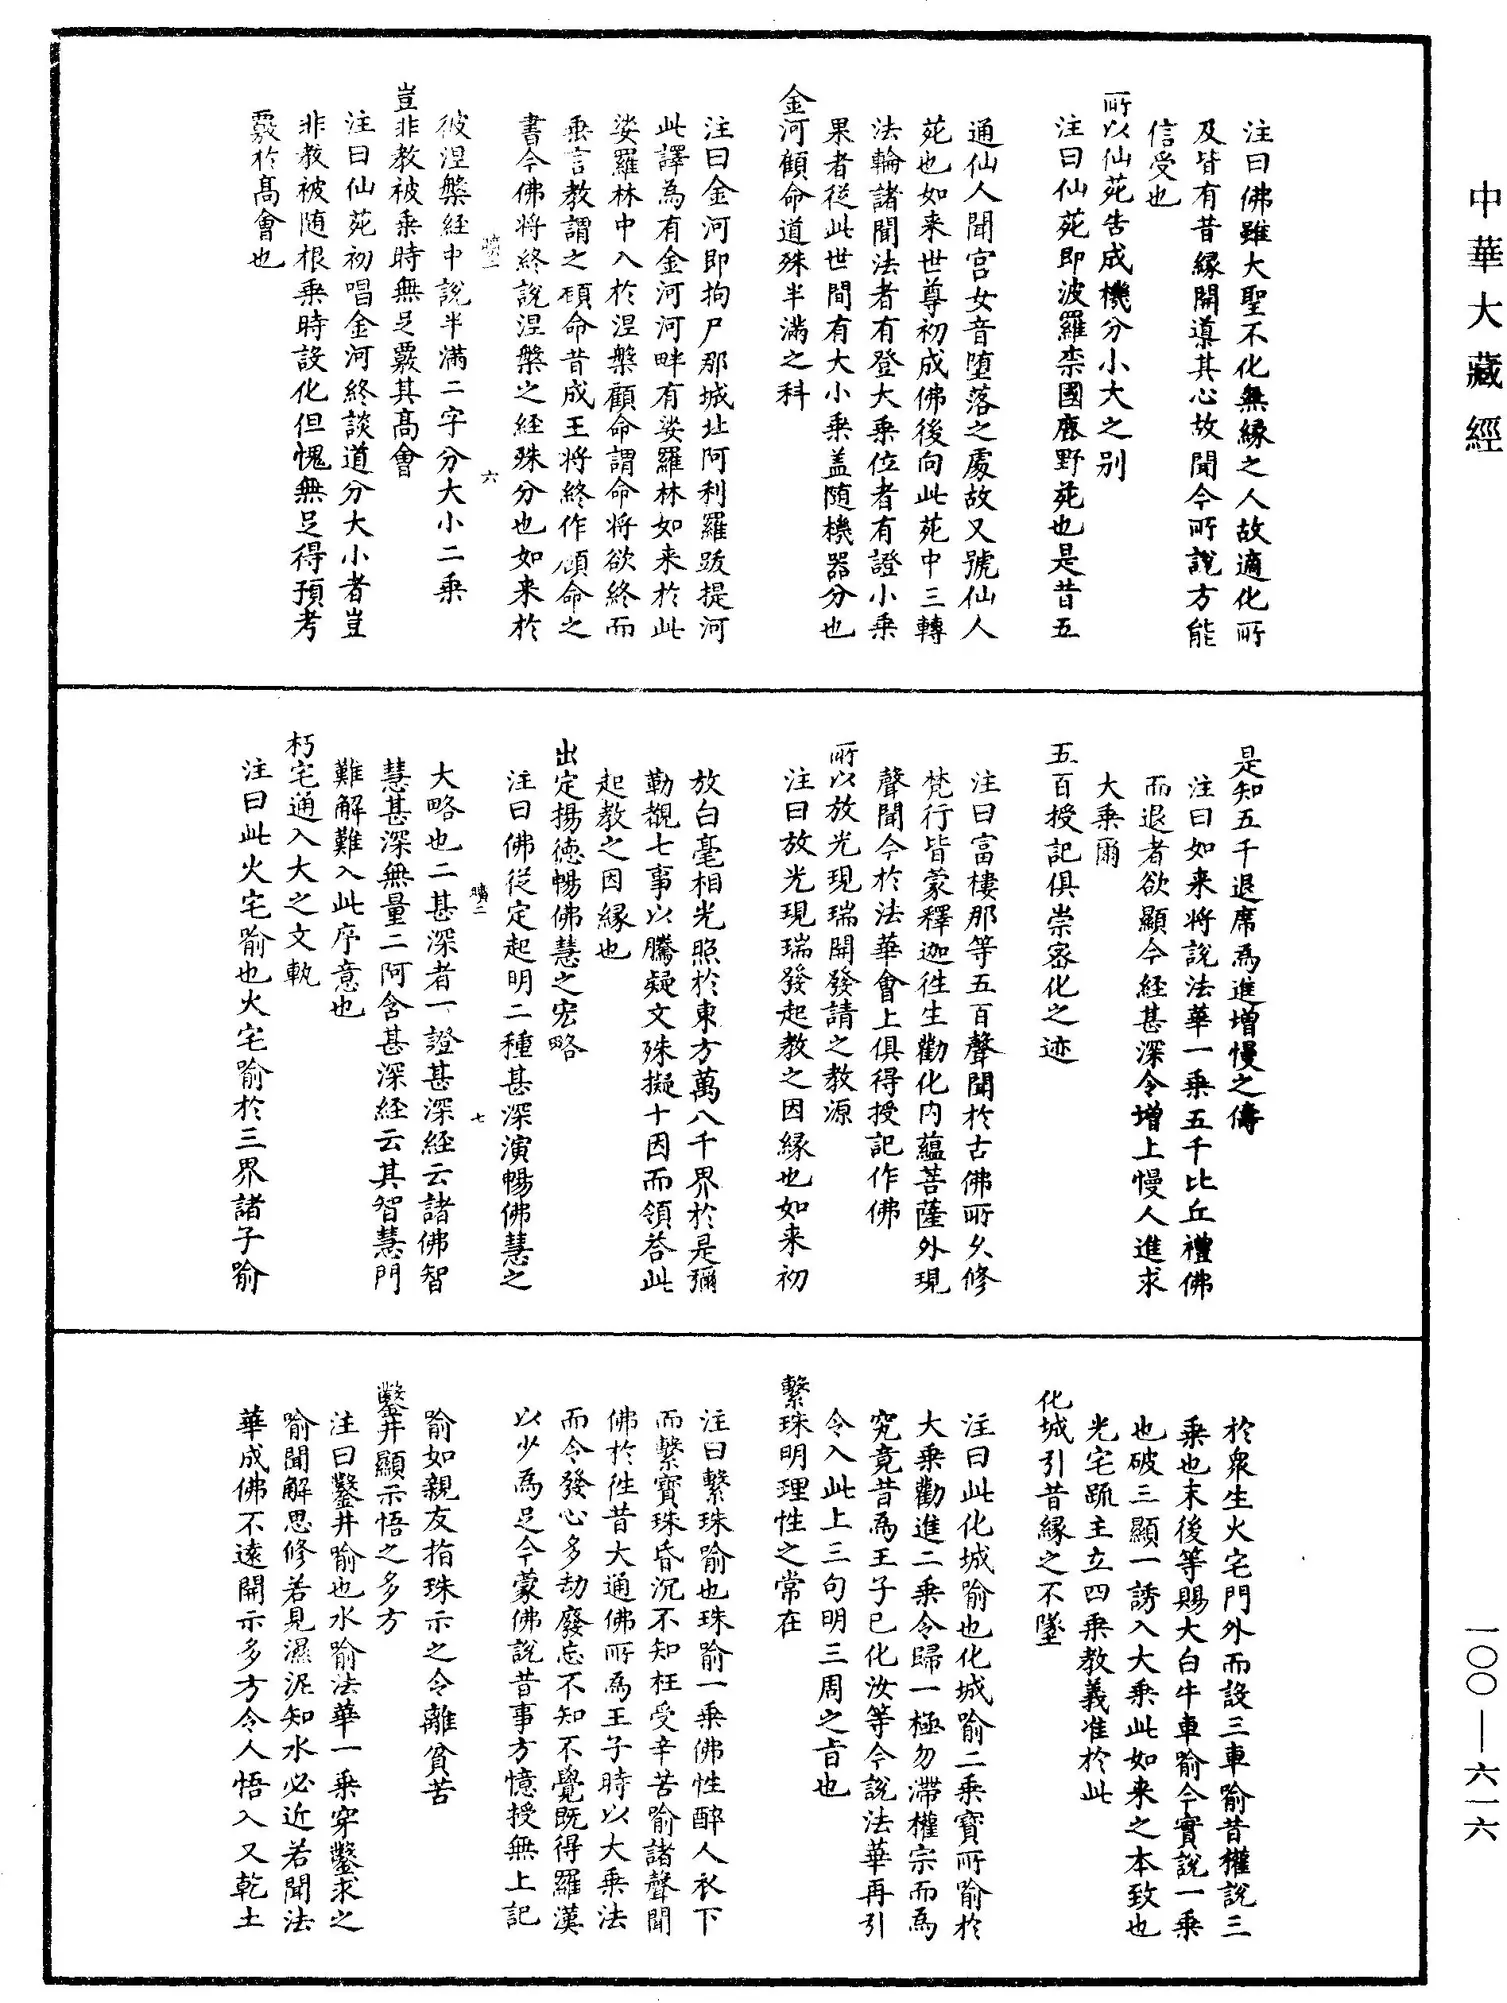 中華大藏經
一〇〇—六一六
注曰佛雖大聖不化無緣之人故適化所
及皆有昔緣開導其心故聞今所說方能
信受也
所以仙苑告成機分小大之别
注曰仙苑即波羅柰國鹿野苑也是昔五
通仙人聞宫女音墮落之處故又號仙人
苑也如来世尊初成佛後向此苑中三轉
法輪諸聞法者有登大乗位者有證小乗
果者從此世間有大小乗盖随機器分也
金河顧命道殊半滿之科
注曰金河即拘尸那城北阿利羅跋提河
此譯為有金河河畔有娑羅林如来於此
娑羅林中入於涅槃顧命謂命将欲終而
垂言教謂之顧命昔成王将終作顧命之
書今佛将終說涅槃之経殊分也如来於
彼涅槃経中說半滿二字分大小二乗
豈非教被乗時無足覈其髙會
注曰仙苑初唱金河終談道分大小者豈
非教被随根乗時設化但愧無足得預考
覈於髙會也
是知五千退席為進増慢之儔
注曰如来将說法華一乗五千比丘禮佛
而退者欲顯今経甚深令増上慢人進求
大乗爾
五百授記俱崇密化之迹
注曰富樓那等五百聲聞於古佛所久修
梵行皆蒙釋迦徃生勸化内藴菩薩外現
聲聞今於法華會上俱得授記作佛
所以放光現瑞開發請之教源
注曰放光現瑞發起教之因緣也如来初
放白毫相光照於東方萬八千界於是彌
勒覩七事以騰疑文殊擬十因而領荅此
起教之因緣也
出定揚徳暢佛慧之宏略
注曰佛從定起明二種甚深演暢佛慧之
大略也二甚深者一證甚深経云諸佛智
慧甚深無量二阿含甚深経云其智慧門
難解難入此序意也
朽宅通入大之文軌
注曰此火宅喻也火宅喻於三界諸子喻
於衆生火宅門外而設三車喻昔權說三
乗也末後等賜大白牛車喻今實說一乗
也破三顯一誘入大乗此如来之本致也
光宅疏主立四乗教義准於此
化城引昔縁之不墜
注曰此化城喻也化城喻二乗寶所喻於
大乗勸進二乗令歸一極勿滯權宗而為
究竟昔為王子已化汝等今說法華再引
令入此上三句明三周之旨也
繫珠明理性之常在
注曰繫珠喻也珠喻一乗佛性醉人衣下
而繫寶珠昏沉不知枉受辛苦喻諸聲聞
佛於徃昔大通佛所為王子時以大乗法
而令發心多劫廢忘不知不覺既得羅漢
以少為足今蒙佛說昔事方憶授無上記
喻如親友指珠示之令離貧苦
鑿井顯示悟之多方
注曰鑿井喻也水喻法華一乗穿鑿求之
喻聞解思修若見濕泥知水必近若聞法
華成佛不遠開示多方令人悟入又乾土